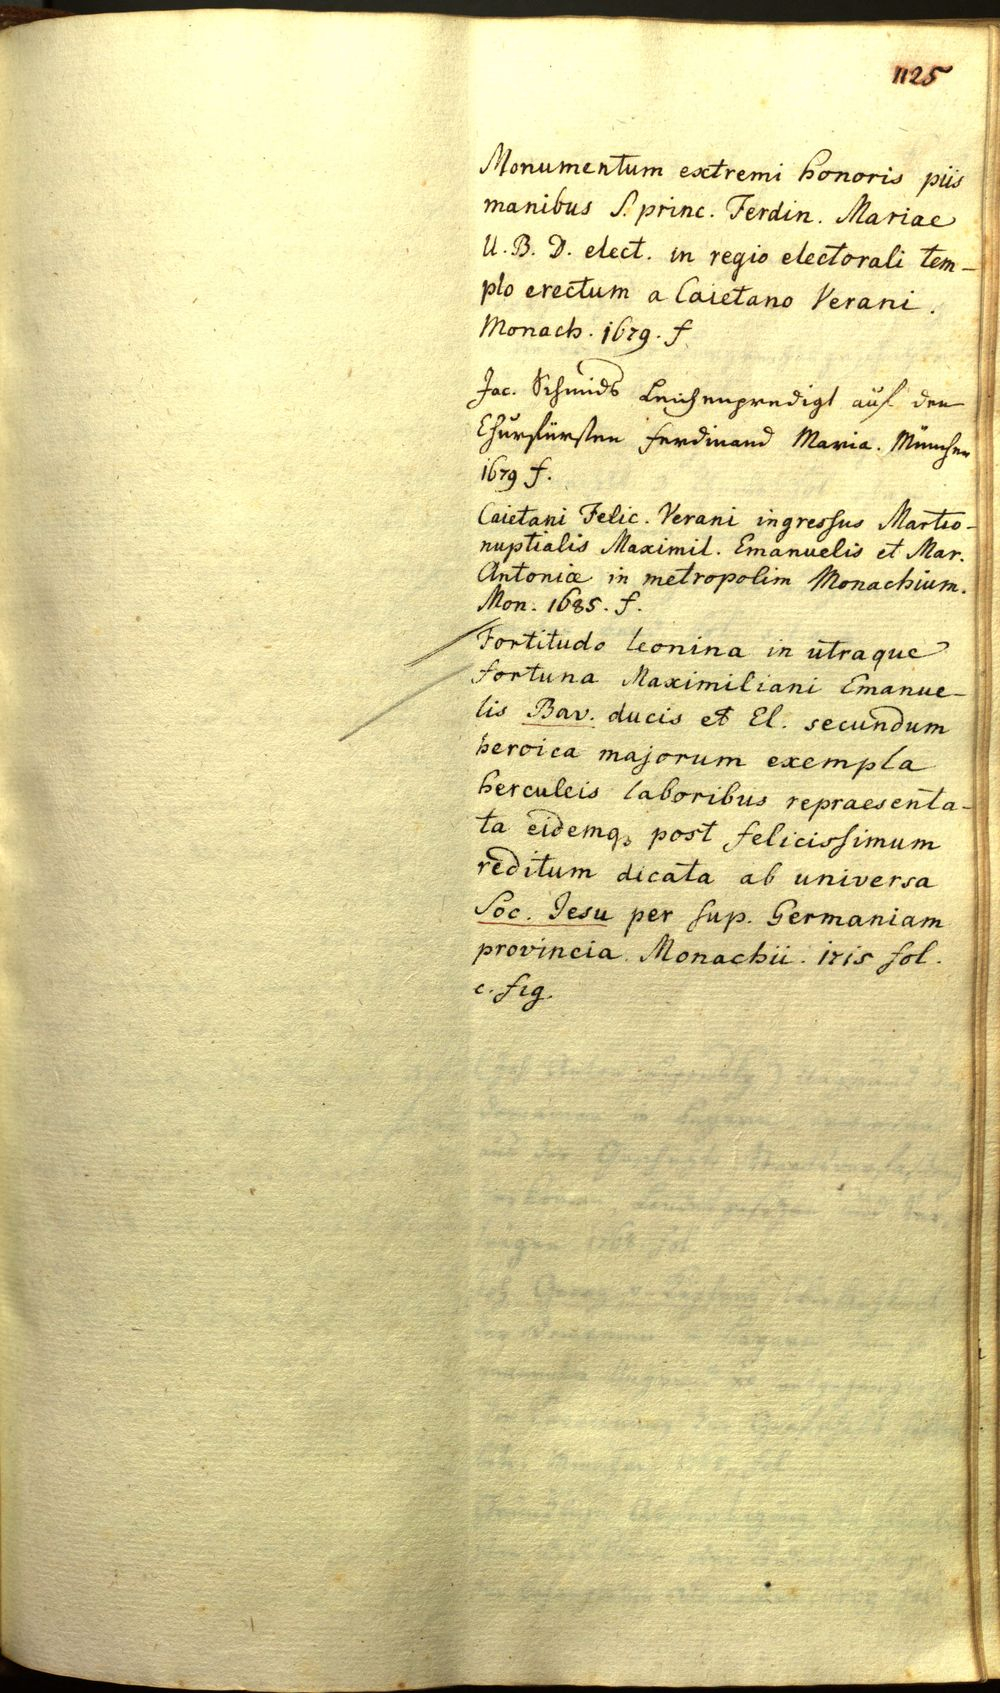 1125
Monumentum extremi honoris piis
manibus S. princ. Ferdin. Mariae
U. B. D. elect. in regio electorali tem-
plo erectum a Caietano Verani.
Monach. 1679. f.
Jac. Schmids Leichenpredigt auf den
Churfürsten Ferdinand Maria. München
1679 f.
Caietani Felic. Verani ingressus Martio-
nuptialis Maximil. Emanuelis et Mar.
Antoniæ in metropolim Monachium.
Mon. 1685. f.
Fortitudo leonina in utraque
fortuna Maximiliani Emanue-
lis Bav. ducis et El. secundum
heroica majorum exempla
herculeis laboribus repraesenta-
ta eidemq. post felicissimum
reditum dicata ab universa
Soc. Jesu per sup. Germaniam
provincia. Monachii. 1715 fol.
c. fig.